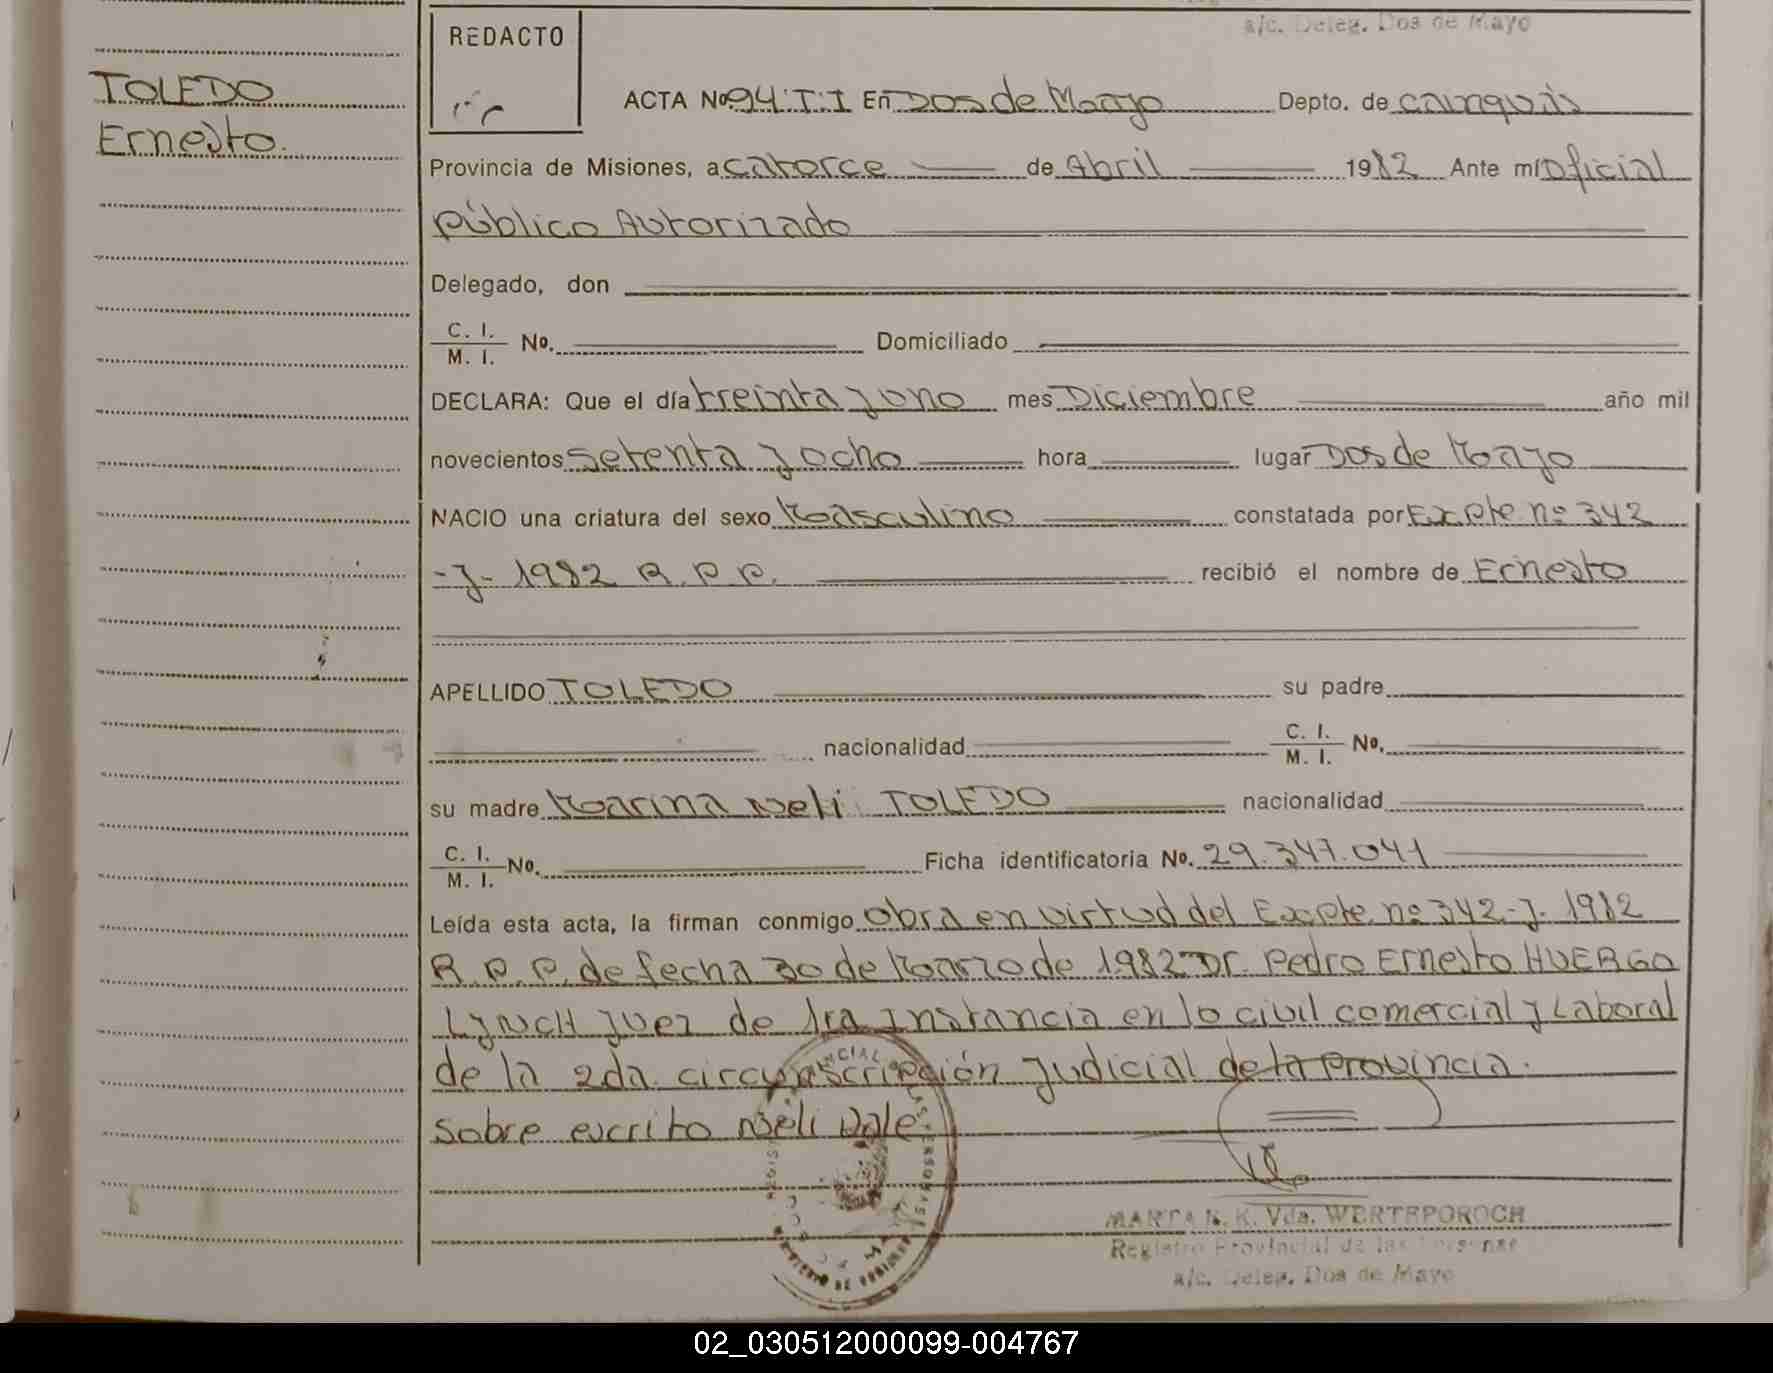 a/c. Deleg. Dos de Mayo
REDACTO
TOLEDO
Ernesto.
ACTA No. 94 T. I En Dos de Mayo Depto. de Cainguás
Provincia de Misiones, a catorce de Abril 1982 Ante mí Oficial
Público Autorizado
Delegado, don
C. I.
M. I. No. Domiciliado
DECLARA: Que el día treinta y uno mes Diciembre año mil
novecientos setenta y ocho hora lugar Dos de Mayo
NACIO una criatura del sexo Masculino constatada por Expte. nº 342
-J- 1982 R. P. P. recibió el nombre de Ernesto
APELLIDO TOLEDO su padre
nacionalidad C. I.
M. I. No.
su madre Marina Neli TOLEDO nacionalidad
C. I.
M. I. No. Ficha identificatoria No. 29.347.041
Leída esta acta, la firman conmigo Obra en virtud del Expte. nº 342-J- 1982
R. P. P. de fecha 30 de Marzo de 1982 Dr. Pedro Ernesto HUERGO
LYNCH Juez de 1ra Instancia en lo civil comercial y Laboral
de la 2da. circunscripción Judicial de la Provincia.
Sobre escrito Neli Vale
MARTA R. K. Vda. WERTEPOROCH
Registro Provincial de las Personas
a/c. Deleg. Dos de Mayo
02_030512000099-004767